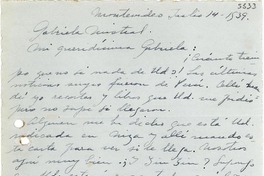 3633
Montevideo Julio 14-1939.
Gabriela Mistral
Mi queridísima Gabriela:
¡Cuánto tiem
po que no sé nada de Ud.! Las últimas
noticias suyas fueron de Perú. Allí
dé yo recortes y libros que Ud. me pedía
pero no supe si llegaron.
Alguien me ha dicho que está Ud.
radicada en Niza y allí mando es
ta carta para ver si le llega. Nosotros
aquí muy bien. ¿Y Yin Yin? Supongo